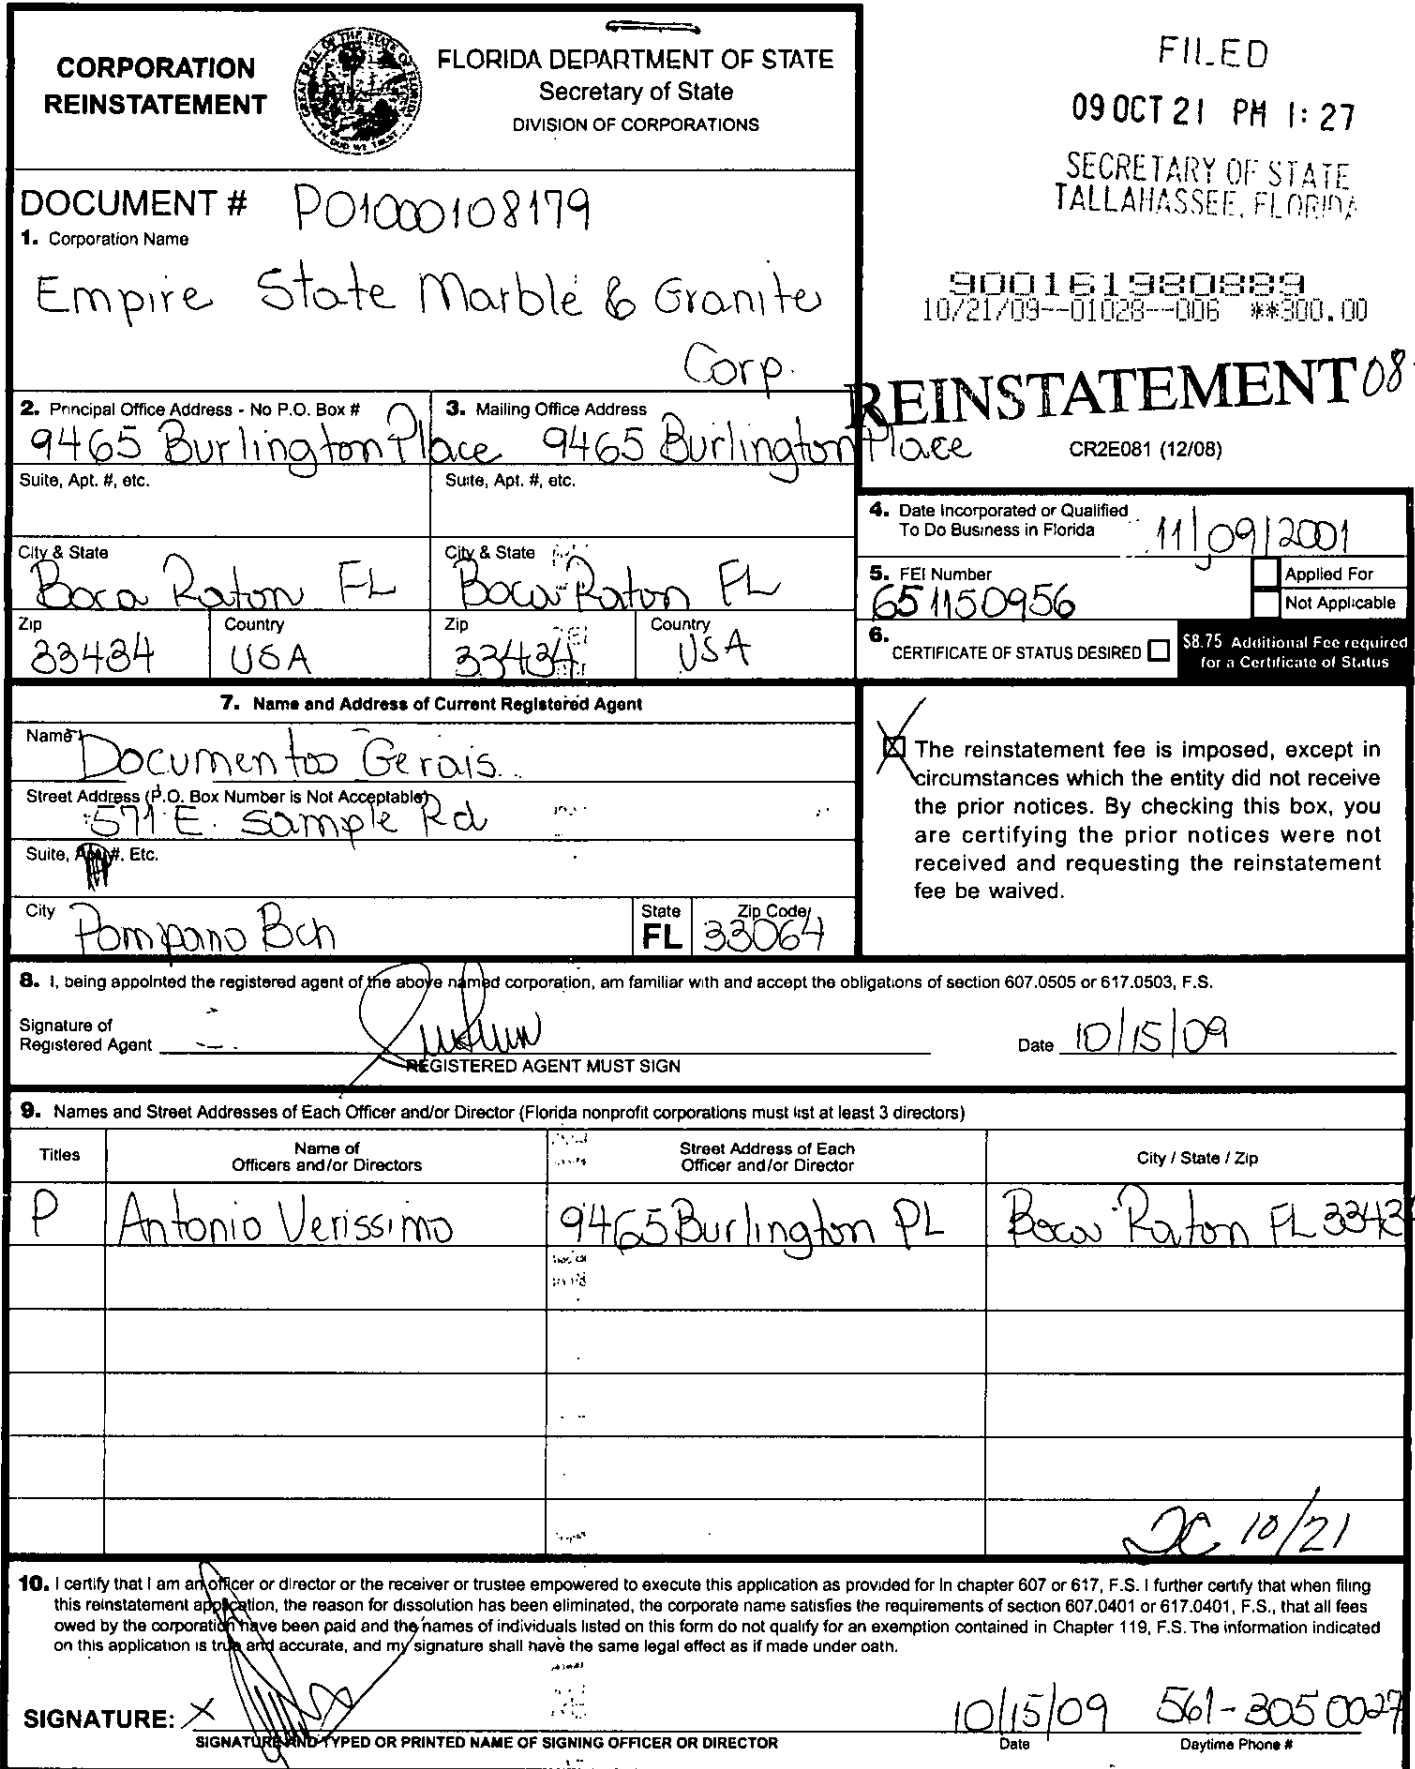 CORPORATION
REINSTATEMENT
GREAT SEAL OF THE STATE OF FLORIDA
IN GOD WE TRUST
FLORIDA DEPARTMENT OF STATE
Secretary of State
DIVISION OF CORPORATIONS
FILED
09 OCT 21 PM 1:27
SECRETARY OF STATE
TALLAHASSEE, FLORIDA
DOCUMENT # P01000108179
1. Corporation Name
Empire State Marble & Granite
Corp.
900161980889
10/21/09--01028--006 **300.00
REINSTATEMENT 08
CR2E081 (12/08)
2. Principal Office Address - No P.O. Box #
9465 Burlington Place
3. Mailing Office Address
9465 Burlington Place
Suite, Apt. #, etc.
Suite, Apt. #, etc.
City & State
Boca Raton FL
City & State
Boca Raton FL
Zip
33434
Country
USA
Zip
33434
Country
USA
4. Date Incorporated or Qualified
To Do Business in Florida 11/09/2001
5. FEI Number
651150956
Applied For
Not Applicable
6. CERTIFICATE OF STATUS DESIRED
$8.75 Additional Fee required
for a Certificate of Status
7. Name and Address of Current Registered Agent
Name
Documentos Gerais
Street Address (P.O. Box Number is Not Acceptable)
571 E. Sample Rd
Suite, Apt. #, Etc.
City
Pompano Bch
State
FL
Zip Code
33064
The reinstatement fee is imposed, except in
circumstances which the entity did not receive
the prior notices. By checking this box, you
are certifying the prior notices were not
received and requesting the reinstatement
fee be waived.
8. I, being appointed the registered agent of the above named corporation, am familiar with and accept the obligations of section 607.0505 or 617.0503, F.S.
Signature of
Registered Agent
REGISTERED AGENT MUST SIGN
Date 10/15/09
9. Names and Street Addresses of Each Officer and/or Director (Florida nonprofit corporations must list at least 3 directors)
Titles
Name of
Officers and/or Directors
Street Address of Each
Officer and/or Director
City / State / Zip
P Antonio Verissimo 9465 Burlington PL Boca Raton FL 3343
10/21
10. I certify that I am an officer or director or the receiver or trustee empowered to execute this application as provided for in chapter 607 or 617, F.S. I further certify that when filing
this reinstatement application, the reason for dissolution has been eliminated, the corporate name satisfies the requirements of section 607.0401 or 617.0401, F.S., that all fees
owed by the corporation have been paid and the names of individuals listed on this form do not qualify for an exemption contained in Chapter 119, F.S. The information indicated
on this application is true and accurate, and my signature shall have the same legal effect as if made under oath.
SIGNATURE: X
10/15/09 561-305 0027
SIGNATURE AND TYPED OR PRINTED NAME OF SIGNING OFFICER OR DIRECTOR
Date
Daytime Phone #